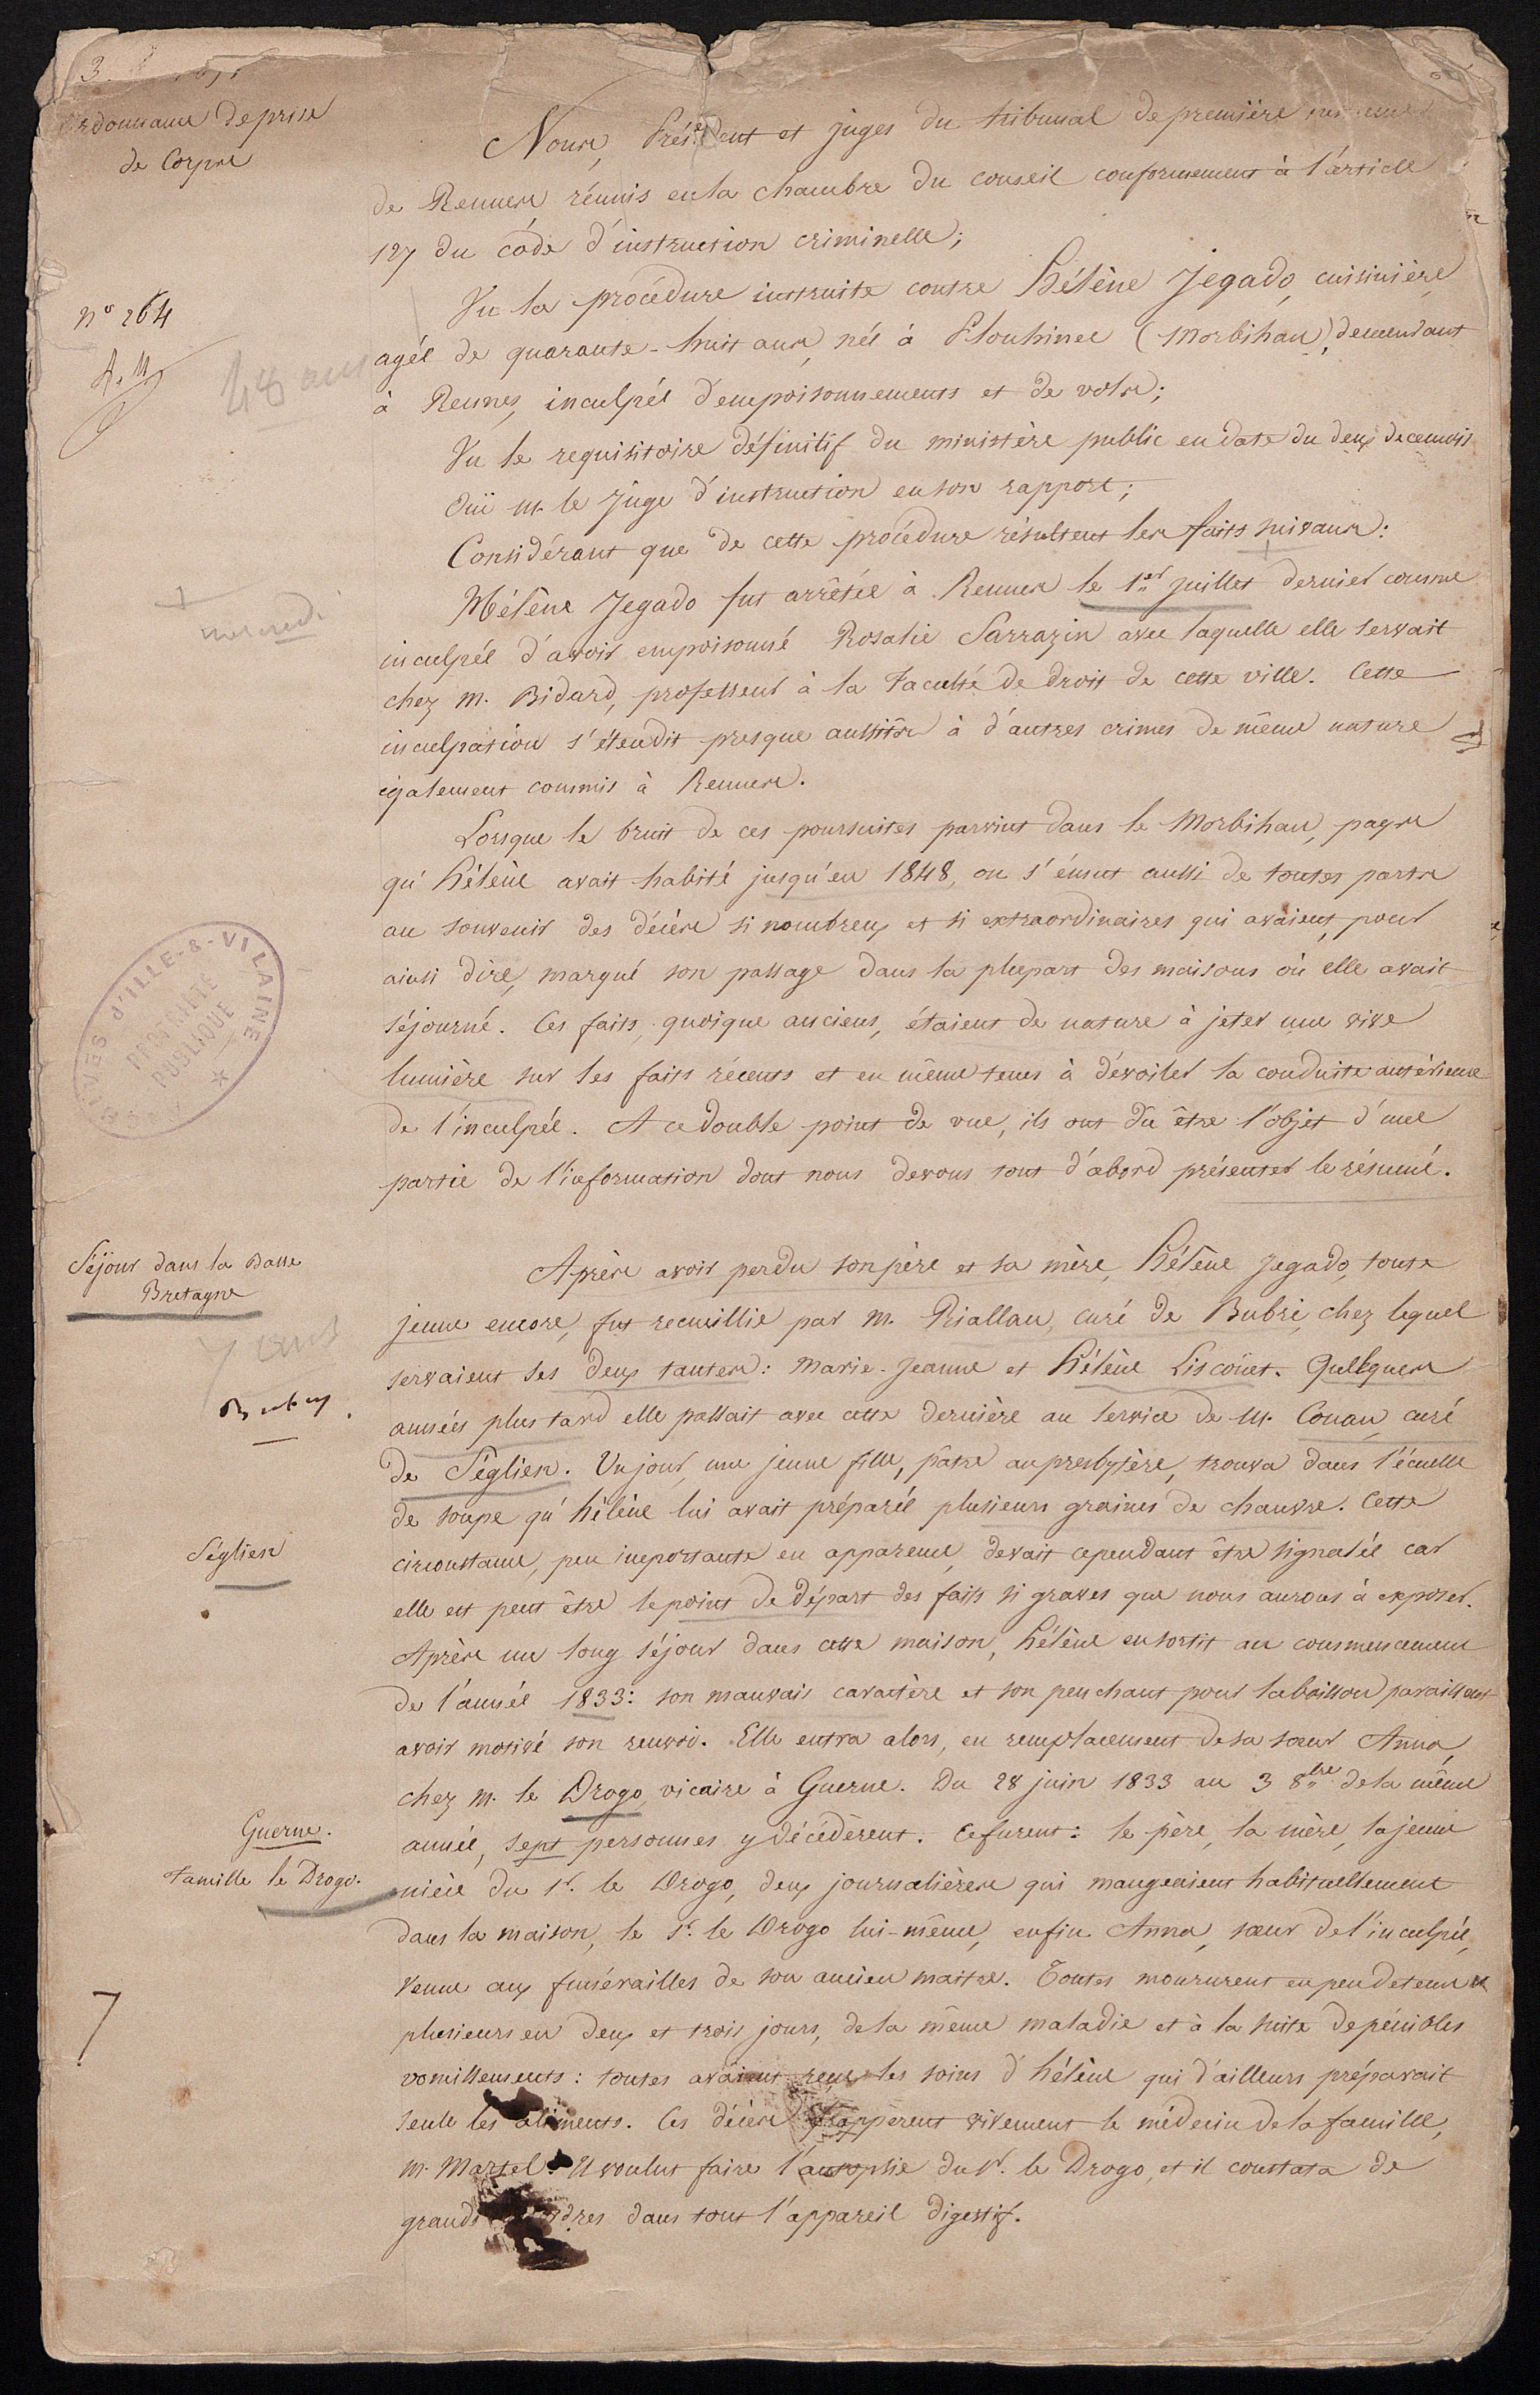 Ordonnance de prise
de Corps
Nous, Président et juges du tribunal de première
de Rennes réunis en la chambre du conseil conformement à l'article
127 du code d'instruction criminelle;
Vu la procédure instruite contre Hélène Jegado, cuisinière,
agée de quarante-huit ans, née à Plouhinec (Morbihan), demeurant
à Rennes, inculpée d'empoisonnements et de vols;
Vu le requisitoire définitif du ministère public en date du deux
Ouï M. le Juge d'instruction en son rapport;
Considérant que de cette procédure résultent les faits suivans:
Hélène Jegado fut arrêtée à Rennes le 1er juillet dernier comme
inculpée d'avoir empoisonné Rosalie Sarrazin avec laquelle elle servait
chez M. Bidard, professeur à la Faculté de droit de cette ville. Cette
inculpation s'étendit presque aussitôt à d'autres crimes de même nature
également commis à Rennes.
Lorsque le bruit de ces poursuites parvint dans le Morbihan, pays
qu'hélène avait habité jusqu'en 1848, on s'émut aussi de toutes parts
au souvenir des décès si nombreux et si extraordinaires qui avaient, pour
ainsi dire, marqué son passage dans la plupart des maisons où elle avait
séjourné. Ces faits, quoique anciens, étaient de nature à jeter une vive
lumière sur les faits récents et en même tems à dévoiler la conduite antérieure
de l'inculpée. A ce double point de vue, ils ont dû être l'objet d'une
partie de l'information dont nous devons tout d'abord présenter le résumé.
Après avoir perdu son père et sa mère, Hélène Jegado, toute
jeune encore, fut recueillie par M. Riallan, curé de Bubri, chez lequel
servaient ses deux tantes: Marie-Jeanne et Hélène Liscoüet. Quelques
années plus tard elle passait avec cette dernière au service de M. Conan, curé
de Séglien. Un jour, une jeune fille, pâtre au presbytère, trouva dans l'écuelle
de soupe qu'hélène lui avait préparée plusieurs graines de chanvre. Cette
circonstance, peu importante en apparence, devait cependant être signalée car
elle est peut être le point de départ des faits si graves que nous aurons à exposer.
Après un long séjour dans cette maison, hélène en sortit au commencement
de l'année 1833: son mauvais caractère et son penchant pour la boisson paraissent
avoir motivé son renvoi. Elle entra alors, en remplacement de sa soeur Anna,
chez M. le Drogo, vicaire à Guerne. Du 28 juin 1833 au 3 8bre de la même
année, sept personnes y décédèrent. Ce furent: le père, la mère, la jeune
nièce du Sr. le Drogo, deux journalières qui mangeaient habituellement
dans la maison, le Sr. le Drogo lui-même, enfin Anna, soeur de l'inculpée,
venue aux funérailles de son ancien maitre. Toutes moururent en peu de tems et
plusieurs en deux et trois jours, de la même maladie et à la suite de pénibles
vomissements: toutes avaient reçu les soins d'hélène qui d'ailleurs préparait
seule les aliments. Ces décès frappèrent vivement le médecin de la famille,
M. Martel. Il voulut faire l'autopsie du Sr. le Drogo, et il constata de
grands désordres dans tout l'appareil digestif.
n° 264
48 ans
mercredi
ARCHIVES D'ILLE-&-VILAINE
PROPRIÉTÉ
PUBLIQUE
Séjour dans la Basse
Bretagne
7 ans
Bubry.
Séglien
Guerne.
Famille le Drogo.
7